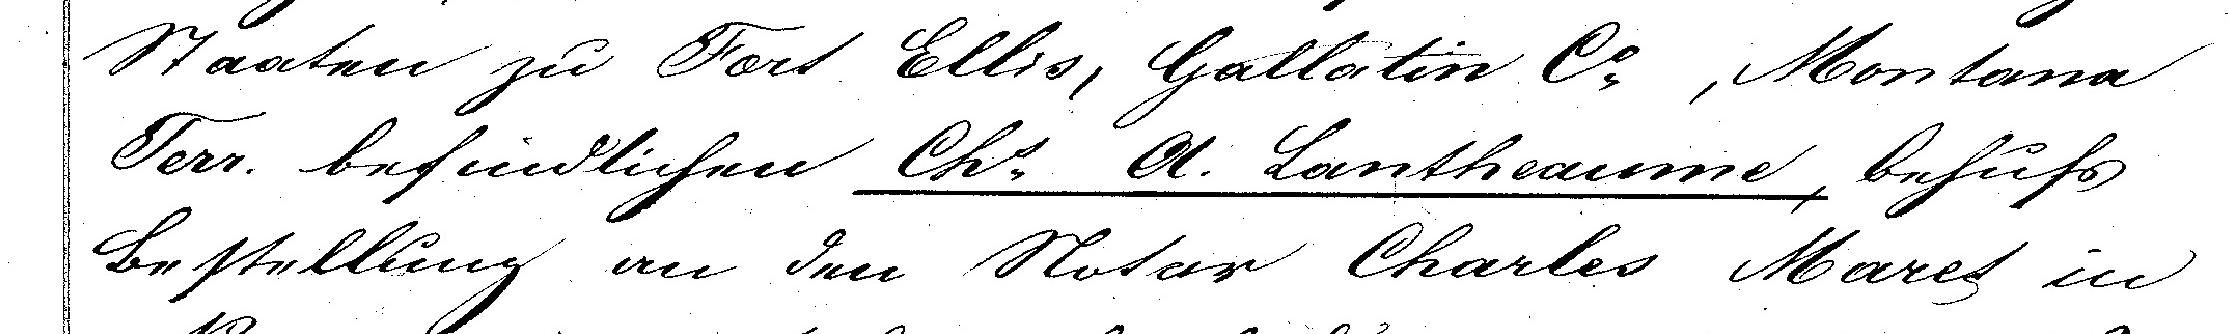 Staaten zu Fort Ellis, Gallatin Co, Montana
Terr. befindlichen Chs. A. Lantheaume, behufs
Bestellung an den Notar Charles Maret in